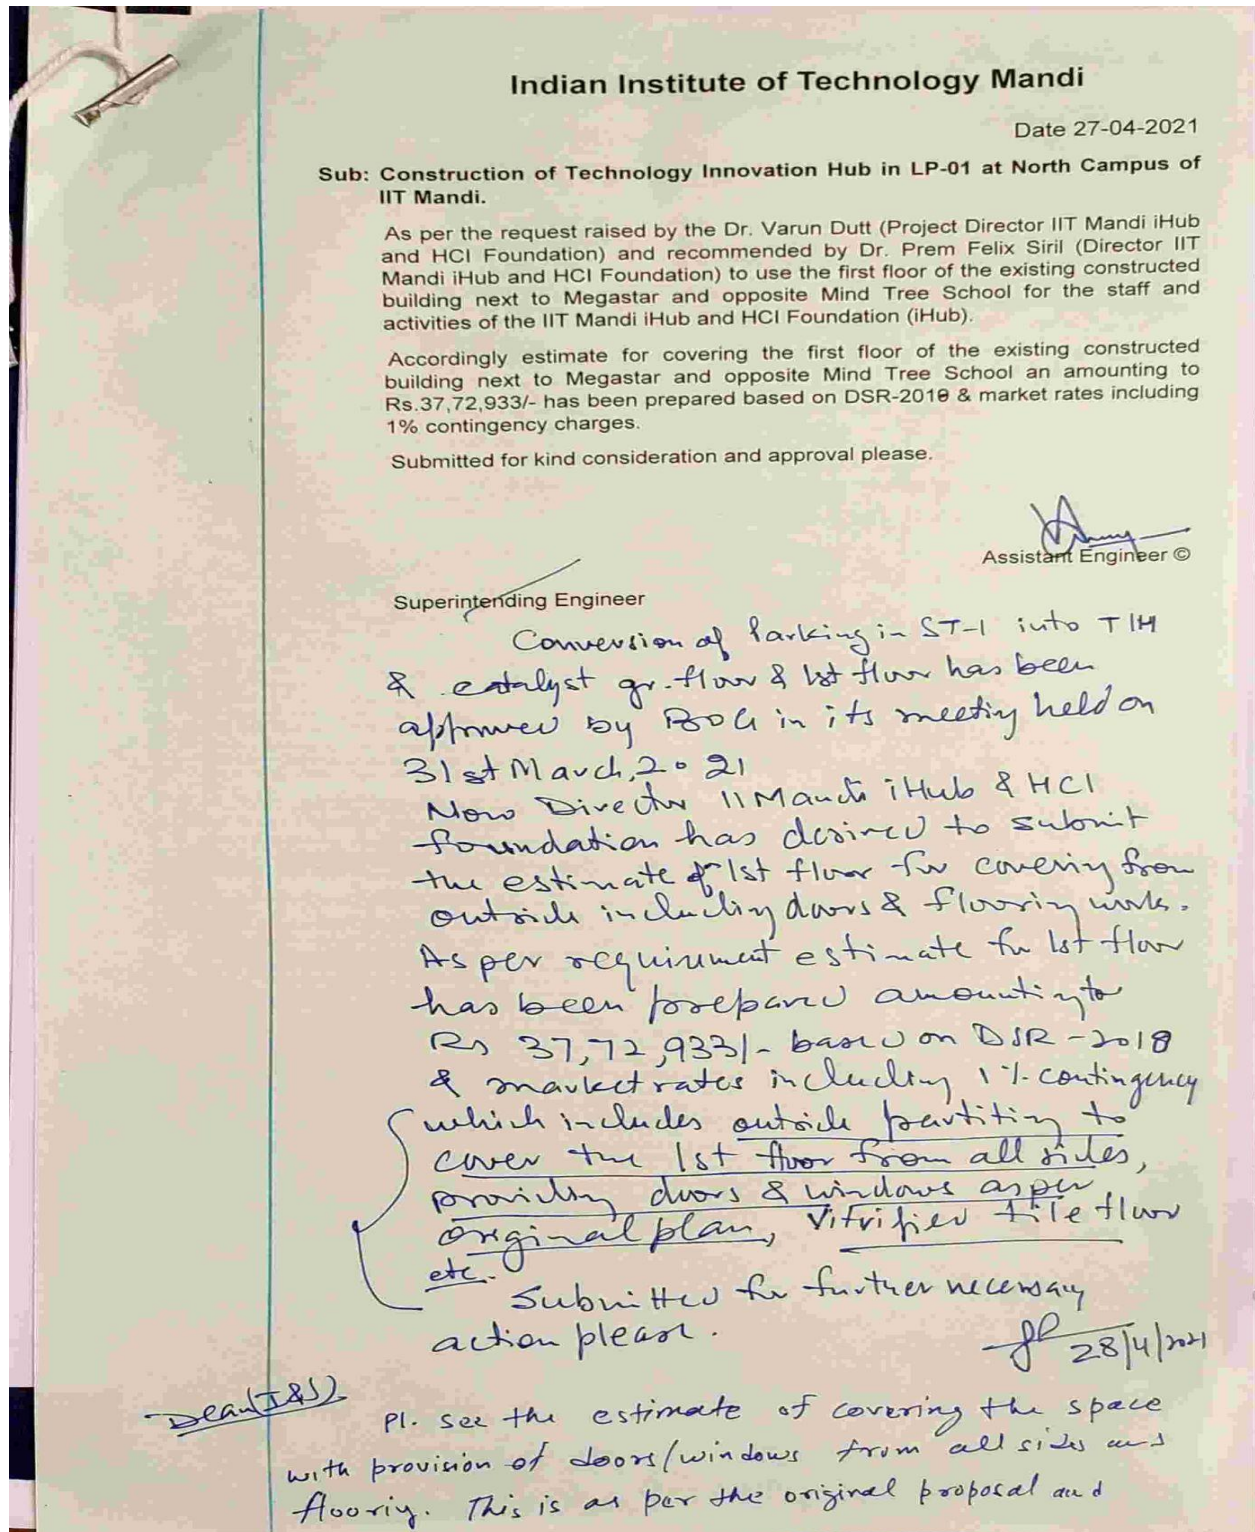 Indian Institute of Technology Mandi
Date 27-04-2021
Sub: Construction of Technology Innovation Hub in LP-01 at North Campus of
IIT Mandi.
As per the request raised by the Dr. Varun Dutt (Project Director IIT Mandi iHub
and HCI Foundation) and recommended by Dr. Prem Felix Siril (Director IIT
Mandi iHub and HCI Foundation) to use the first floor of the existing constructed
building next to Megastar and opposite Mind Tree School for the staff and
activities of the IIT Mandi iHub and HCI Foundation (iHub).
Accordingly estimate for covering the first floor of the existing constructed
building next to Megastar and opposite Mind Tree School an amounting to
Rs.37,72,933/- has been prepared based on DSR-2018 & market rates including
1% contingency charges.
Submitted for kind consideration and approval please.
Assistant Engineer ©
Superintending Engineer
Conversion of Parking in ST-1 into TIH
& catalyst gr. floor & 1st floor has been
approved by BOG in its meeting held on
31st March, 2021
Now Director II Mandi iHub & HCI
foundation has desired to submit
the estimate of 1st floor for covering from
outside including doors & flooring work.
As per requirement estimate for 1st floor
has been prepared amounting to
Rs 37,72,933/- based on DSR-2018
& market rates including 1% contingency
which includes outside partiting to
cover the 1st floor from all sides,
providing doors & windows as per
original plan, Vitrified tile floor
etc.
Submitted for further necessary
action please.
28/4/2021
Dean (I&S)
Pl. see the estimate of covering the space
with provision of doors/windows from all sides and
flooriy. This is as per the original proposal and